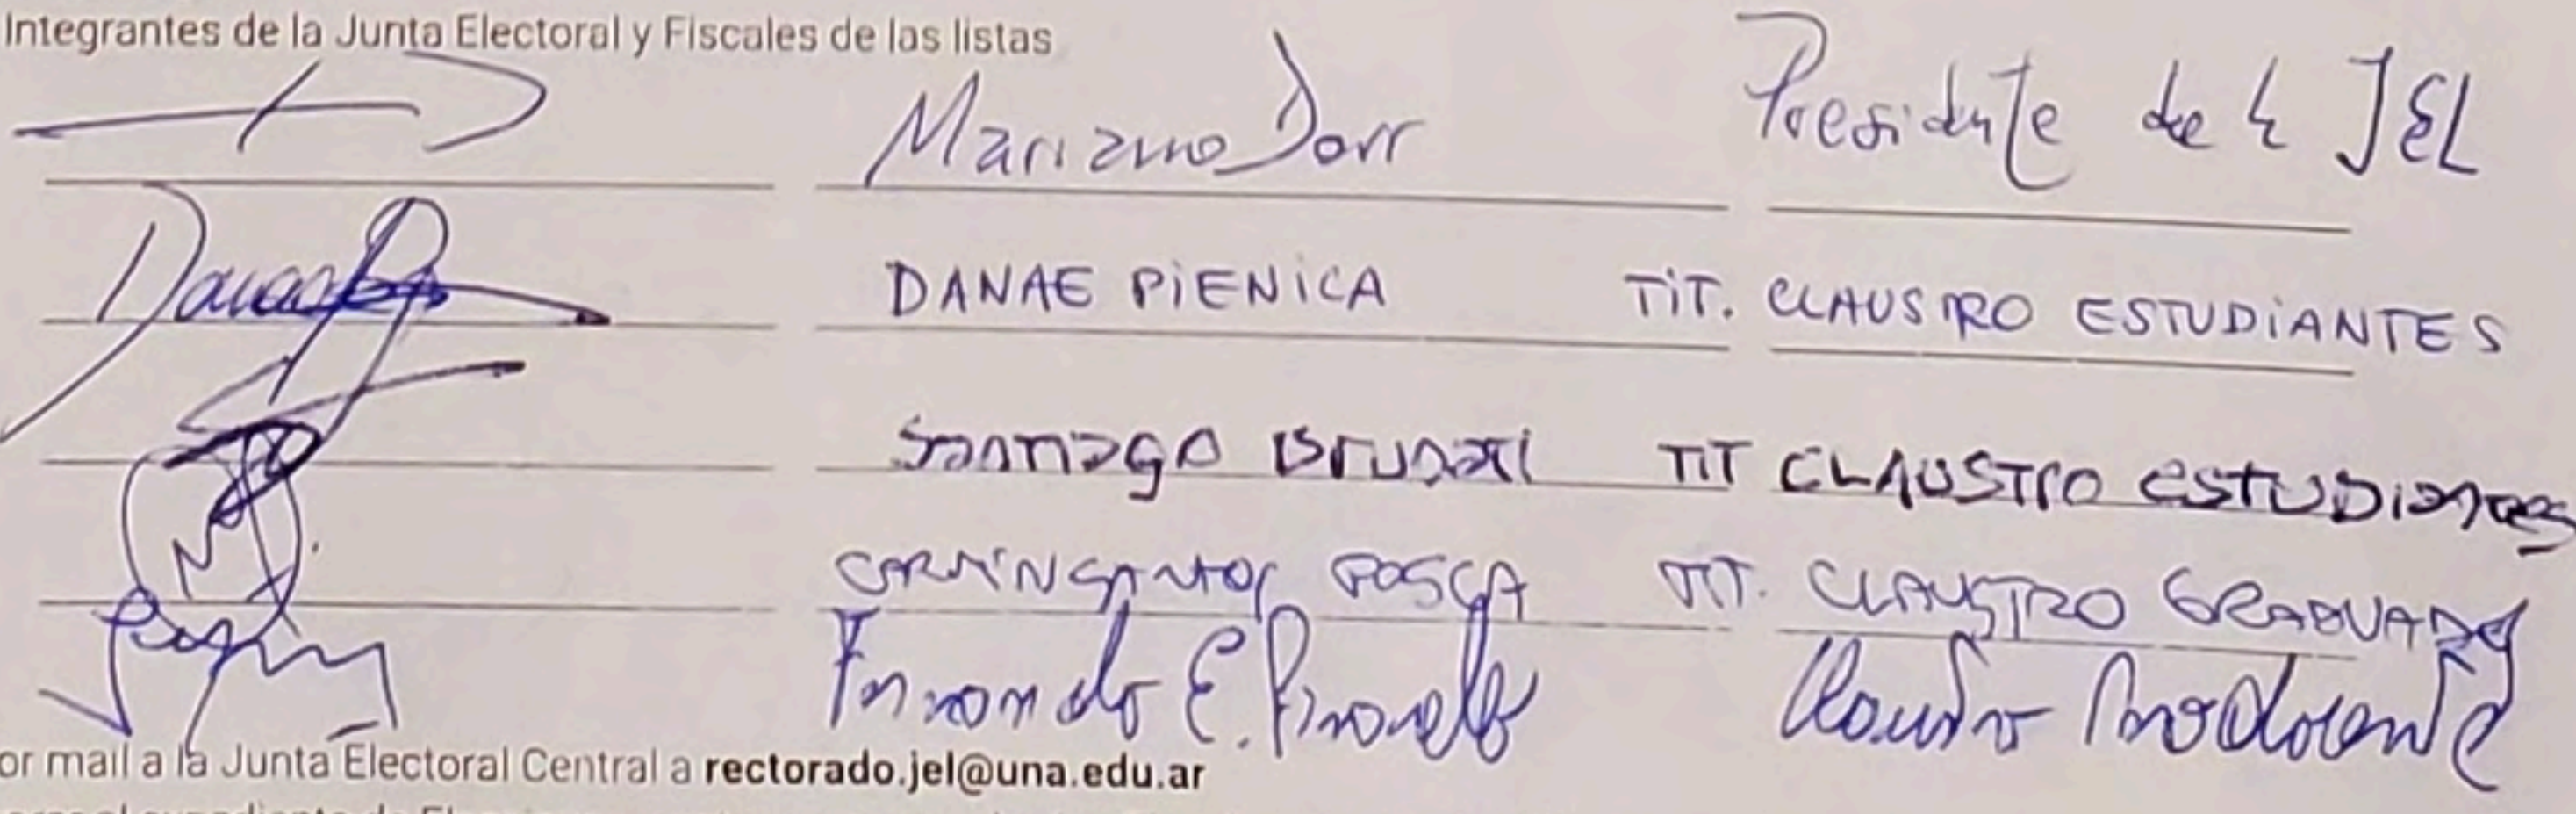 Integrantes de la Junta Electoral y Fiscales de las listas
Mariano Dorr Presidente de la JEL
DANAE PIENICA TIT. CLAUSTRO ESTUDIANTES
Santiago Brunati TIT CLAUSTRO ESTUDIANTES
FOSCA TIT. CLAUSTRO GRADUADOS
Fernando E. Claustro
or mail a la Junta Electoral Central a rectorado.jel@una.edu.ar